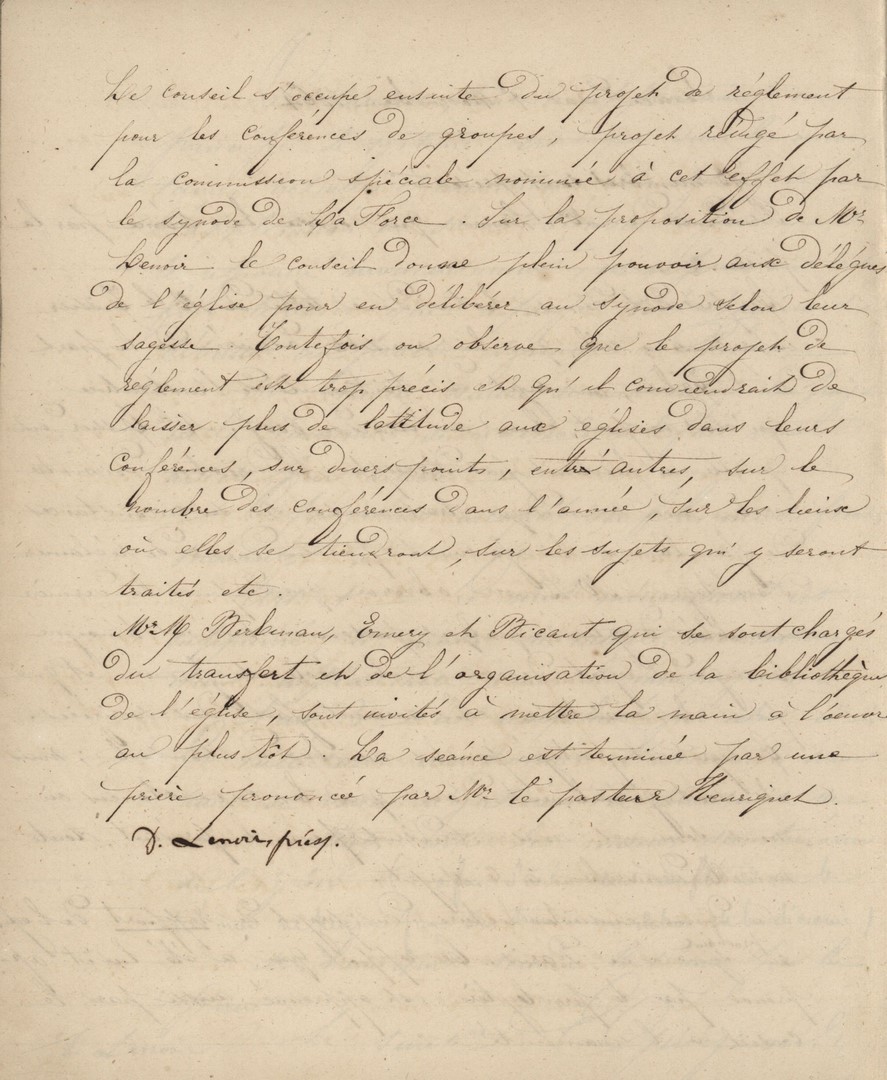 Le conseil s'occupe ensuite du projet de réglement
pour les conférences de groupes, projet rédigé par
la commission spéciale nommée à cet effet par
le synode de La Force. Sur la proposition de Mr
Lenoir le conseil donne plein pouvoir aux délégués
de l'église pour en délibérer au synode selon leur
sagesse. Toutefois on observe que le projet de
réglement est trop précis et qu'il conviendrait de
laisser plus de latitude aux églises dans leurs
conférences, sur divers points, entre autres, sur le
nombre des conférences dans l'année, sur les lieux
où elles se tiendront, sur les sujets qui y seront
traités etc.
Mr M Emery et Bicaut qui se sont chargés
du transfert et de l'organisation de la bibliothèque
de l'église, sont invités à mettre la main à l'oeuvre
au plus tôt. La séance est terminée par une
prière prononcée par Mr le pasteur Henriquet.
D. Lenoir, prés.